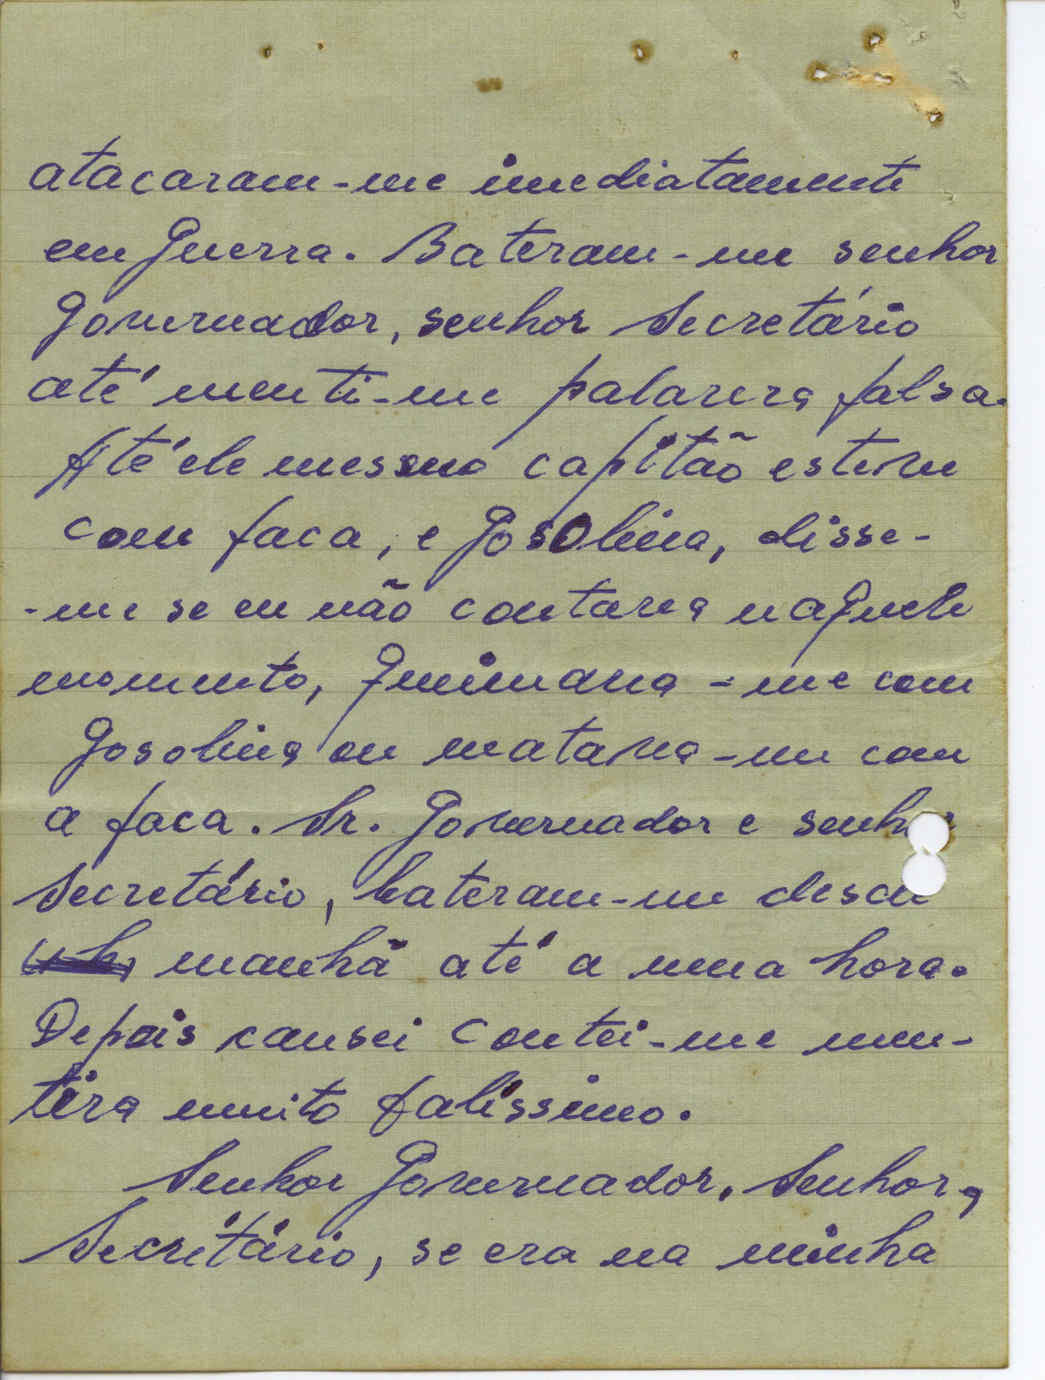 atacaram-me imediatamente
em Guerra. Bateram-me senhor
Governador, senhor Secretário
até menti-me palavra falsa.
Até ele mesmo capitão esteve
com faca, e Gosolina, disse-
-me se eu não contava naquele
momento, queimava-me com
Gosolina ou matava-me com
a faca. Sr. Governador e senhor
Secretário, bateram-me desde
manhã até a uma hora.
Depois cansei contei-me men-
tira muito falíssimo.
Senhor Governador, Senhor,
Secrétário, se era na minha